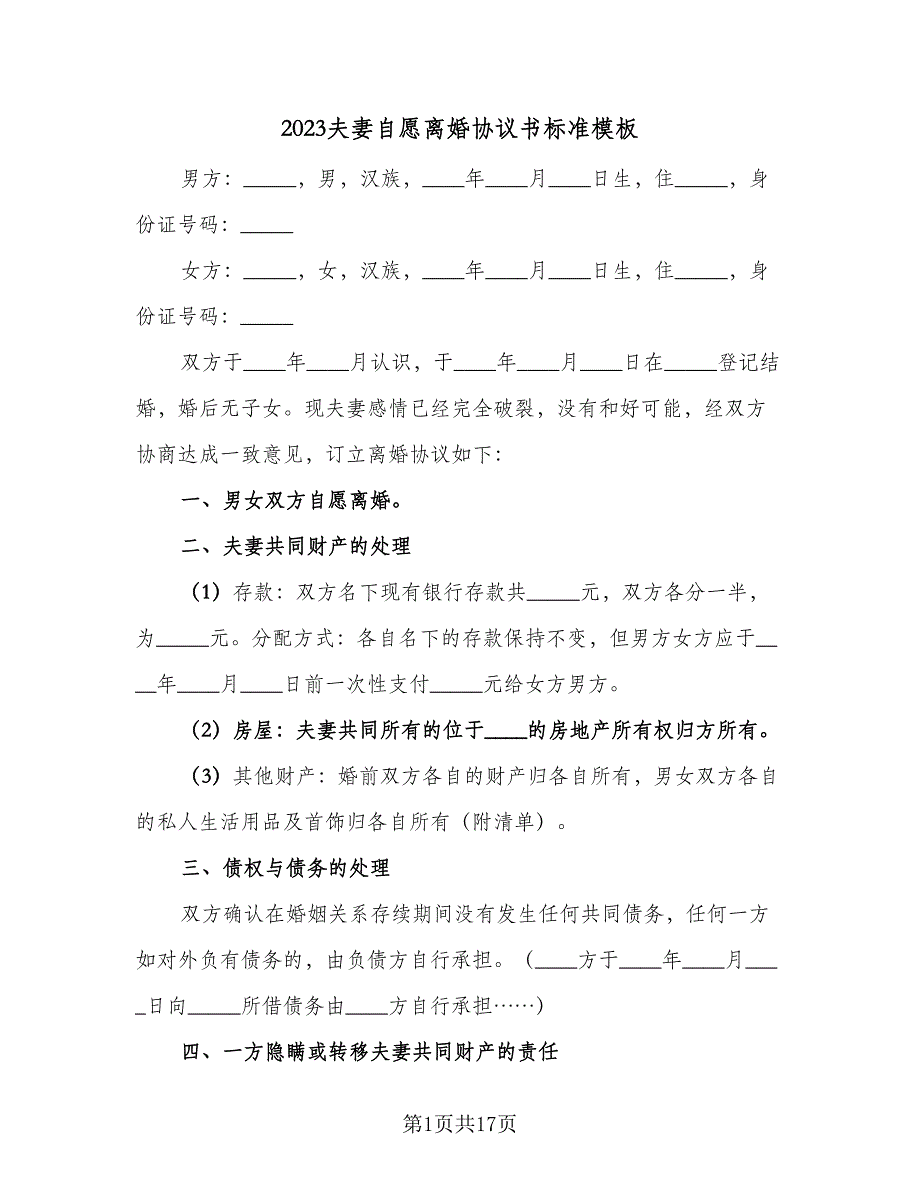 2023夫妻自愿离婚协议书标准模板
男方：_____，男，汉族，____年____月____日生，住_____，身
份证号码：_____
女方：_____，女，汉族，____年____月____日生，住_____，身
份证号码：_____
双方于____年____月认识，于____年____月____日在_____登记结
婚，婚后无子女。现夫妻感情已经完全破裂，没有和好可能，经双方
协商达成一致意见，订立离婚协议如下：
一、男女双方自愿离婚。
二、夫妻共同财产的处理
（1）存款：双方名下现有银行存款共_____元，双方各分一半，
为_____元。分配方式：各自名下的存款保持不变，但男方女方应于__
__年____月____日前一次性支付_____元给女方男方。
（2）房屋：夫妻共同所有的位于____的房地产所有权归方所有。
（3）其他财产：婚前双方各自的财产归各自所有，男女双方各自
的私人生活用品及首饰归各自所有（附清单）。
三、债权与债务的处理
双方确认在婚姻关系存续期间没有发生任何共同债务，任何一方
如对外负有债务的，由负债方自行承担。（____方于____年____月___
_日向_____所借债务由____方自行承担……）
四、一方隐瞒或转移夫妻共同财产的责任
第1页共17页